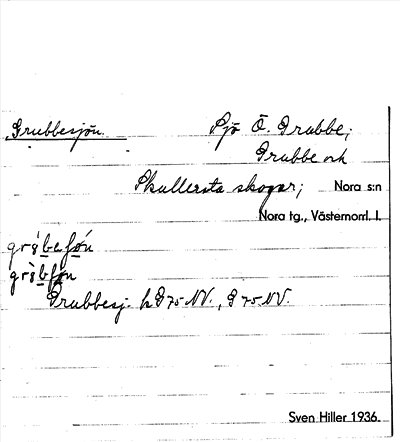 Grubbesjön. Sjö Ö. Grubbe;
Grubbe och
Skullersta skogar; Nora s:n
Nora tg., Västernorrl. l.
Grubbesj. h G 75 NV., G 75 NV.
Sven Hiller 1936.